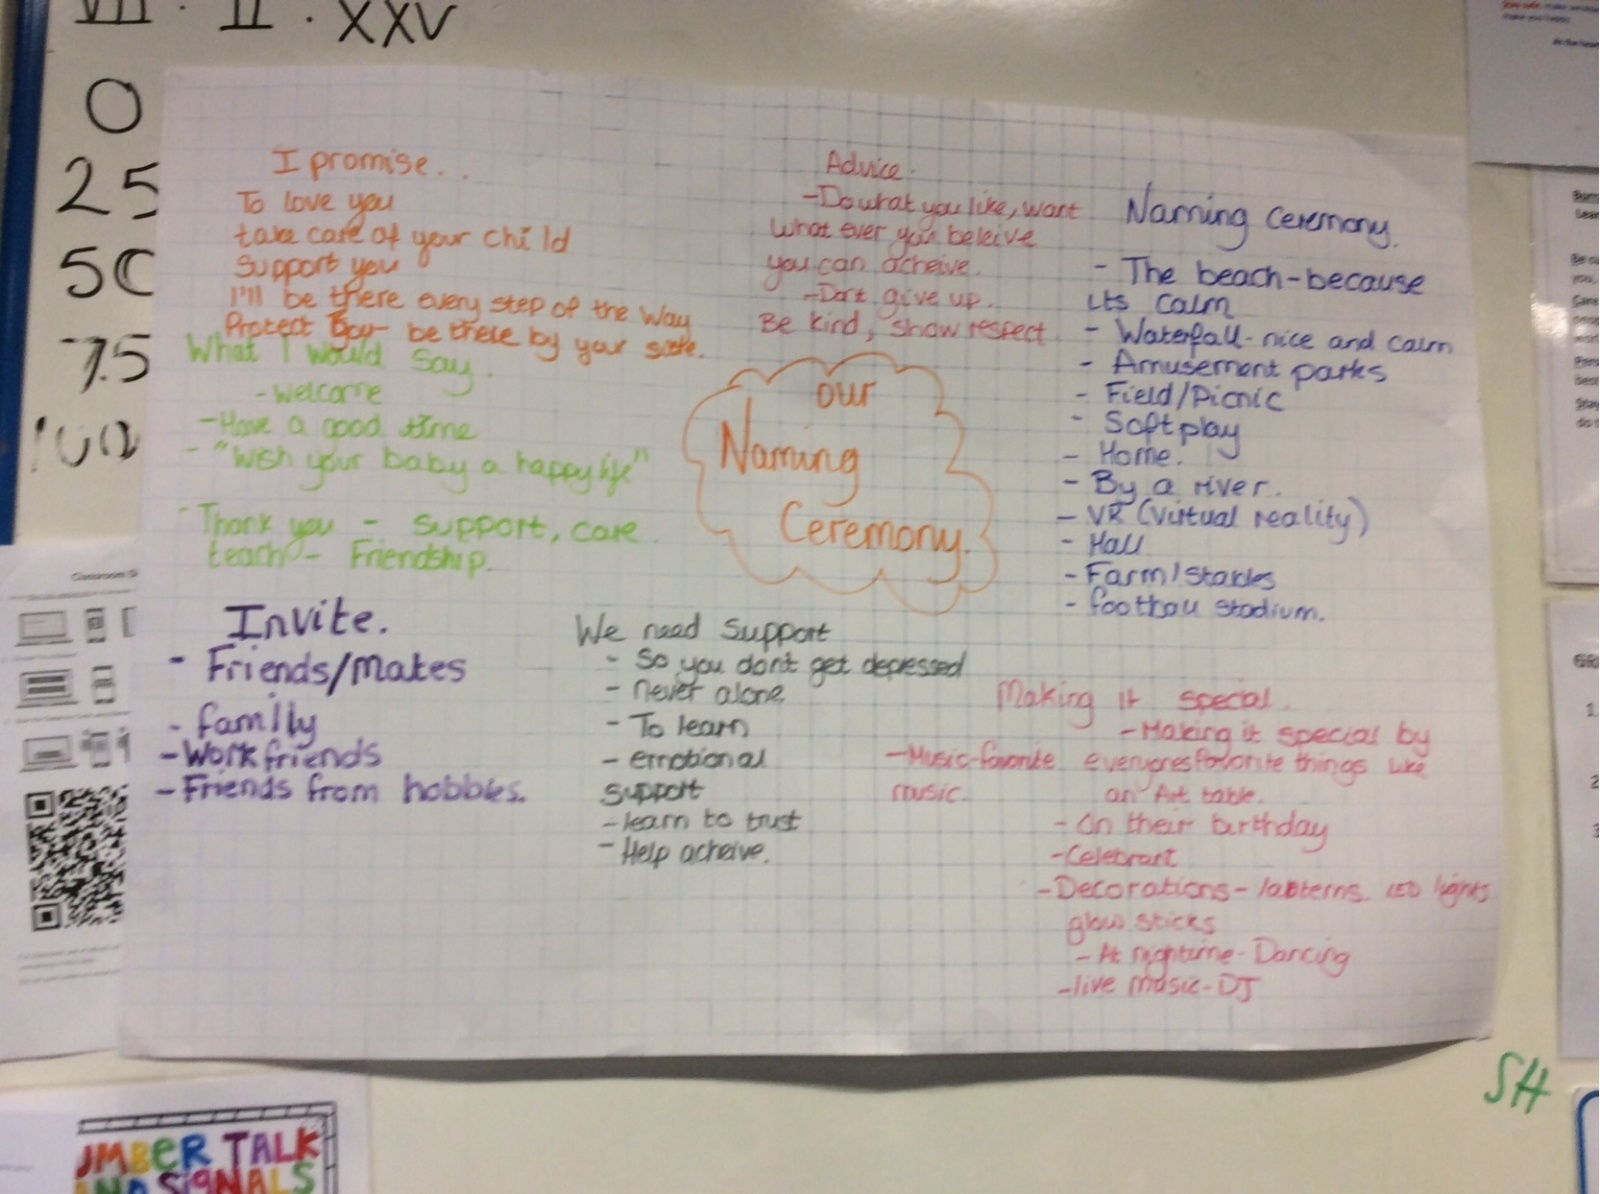 VII · II · XXV
0
25
50
75
100
I promise...
To love you
take care of your child
Support you
I'll be there every step of the Way
Protect you be there by your side.
What I would Say.
- Welcome
- Have a good time
- "Wish your baby a happy life"
- Thank you - support, care.
teach - Friendship.
Advice.
- Do what you like, want
What ever you beleive
you can acheive.
- Dont give up.
Be kind, show respect
our
Naming
Ceremony.
Naming Ceremony.
- The beach - because
its calm
- Waterfall - nice and calm
- Amusement parks
- Field/Picnic
- Soft play
- Home.
- By a river.
- VR (virtual reality)
- Hall
- Farm/Stables
- football stadium.
Invite.
- Friends/Mates
- family
- Work friends
- Friends from hobbies.
We need Support
- So you dont get depressed
- never alone
- To learn
- emotional
support
- learn to trust
- Help acheive.
Making it special.
- Making it special by
everyones favorite things like
an Art table.
- Music - favorite
music.
- On their birthday
- Celebrant
- Decorations - lanterns. LED lights
glow sticks
- At nightime - Dancing
- live music - DJ
SH
Classroom
UMBER TALK
AND SIGNALS